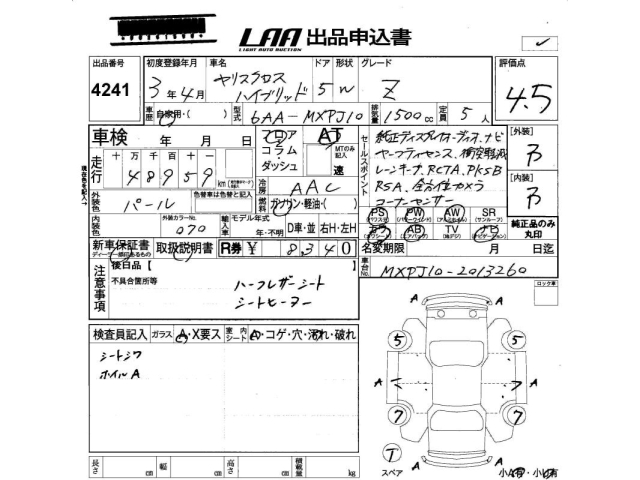 LAA 出品申込書
LIGHT AUTO AUCTION
出品番号 4241
初度登録年月 3年4月
車名 ヤリスクロス ハイブリッド
ドア 形状 5 W
グレード Z
評価点 4.5
車歴 自家用・( )
型式 6AA-MXPJ10
排気量 1500cc
定員 5人
車検 年 月 日
フロア コラム・ダッシュ
AT MTのみ記入 速
セールスポイント
純正ディスプレイオーディオ,ナビ
セーフティセンス,衝突軽減
レーンキープ,RCTA,PKSB
RSA,全方位カメラ
コーナーセンサー
[外装]
[内装]
走行 十万千百十一
48959 km
現在色を記入→
冷房 AAC
外装色 パール
色替車は色替と記入
燃料 ガソリン・軽油・( )
外装カラーNo. 070
輸入車 モデル年式 年・不明
D車・並 右H・左H
PS PW AW SR (サンルーフ)
TV ナビ
純正品のみ丸印
新車保証書 取扱説明書
R券 ¥ 8,340
名変期限 月 日迄
車台No. MXPJ10-2013260
注意事項
後日品【 】
不具合箇所等
ハーフレザーシート
シートヒーター
ロック車
検査員記入 ガラス A・X要ス 室内シート A・コゲ・穴・汚れ・破れ
シートシワ
ホイルA
A A
5 5
A A
7 7
A A
T
スペア
長さ cm 幅 cm 高さ cm 積載量 kg